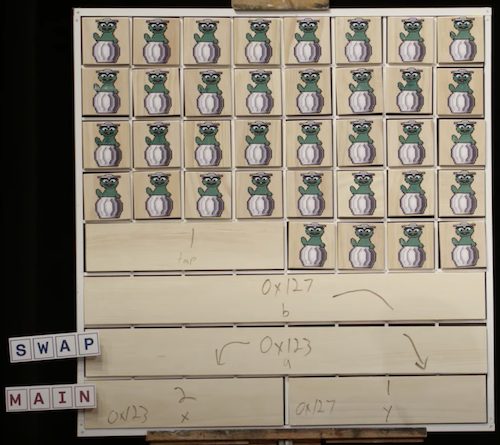 1
tmp
0x127
b
SWAP
0x123
a
MAIN
2
0x123
x
1
0x127
y